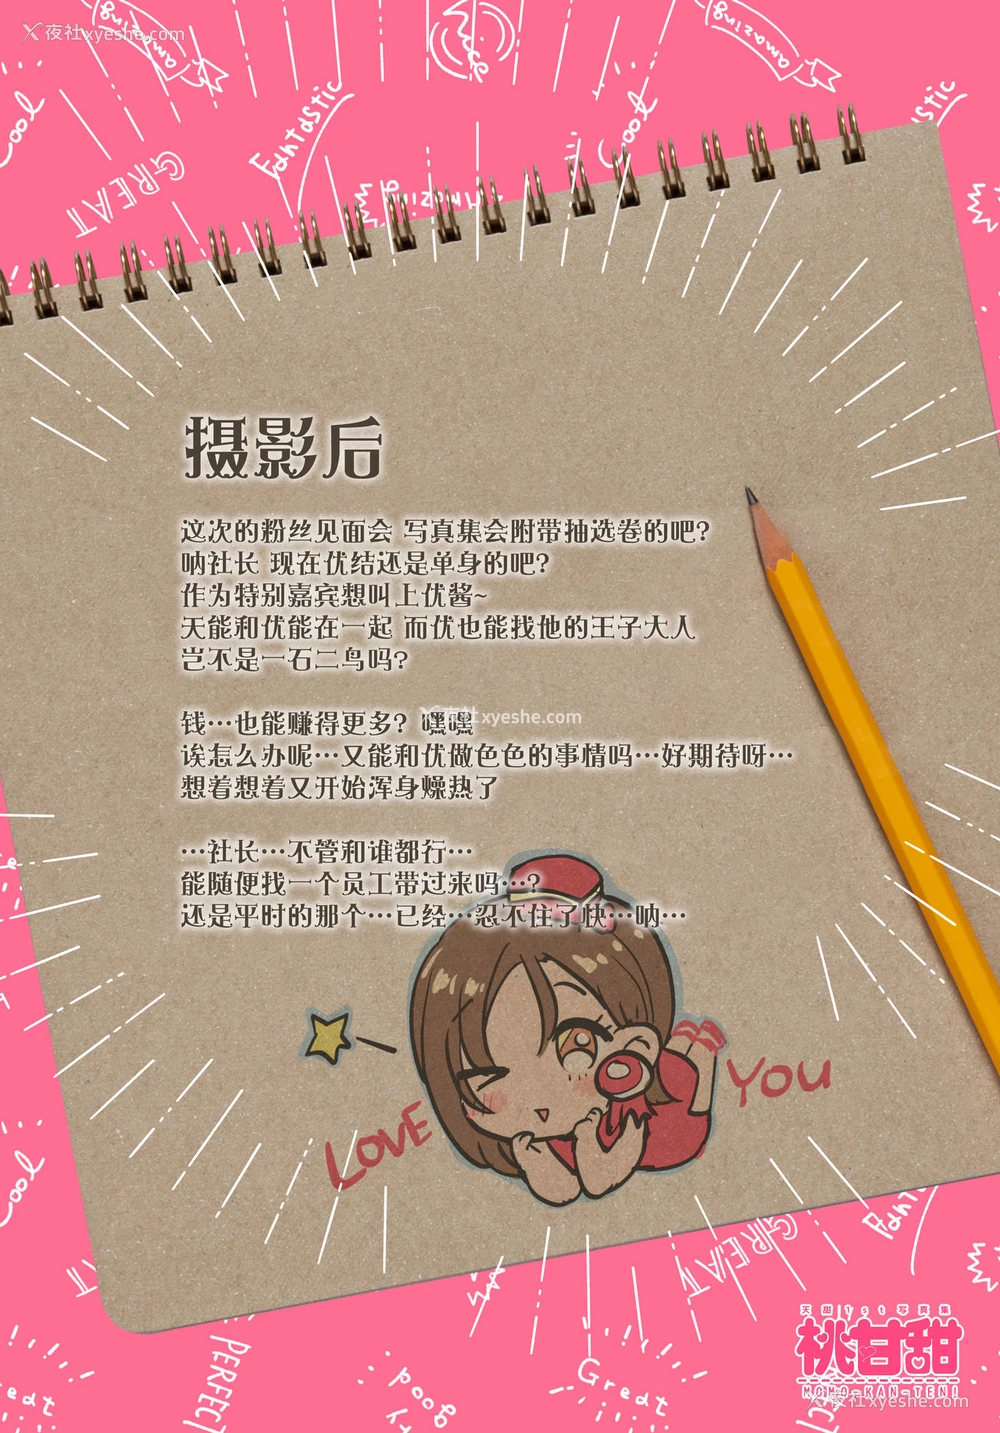 夜社xyeshe.com
amazing
amazing
Nice
Cool
Fantastic
Cool
GREAT
amazing
摄影后
这次的粉丝见面会 写真集会附带抽选卷的吧?
呐社长 现在优结还是单身的吧?
作为特别嘉宾想叫上优酱~
天能和优能在一起 而优也能找他的王子大人
岂不是一石二鸟吗?
钱…也能赚得更多? 嘿嘿
夜社xyeshe.com
诶怎么办呢…又能和优做色色的事情吗…好期待呀…
想着想着又开始浑身燥热了
…社长…不管和谁都行…
能随便找一个员工带过来吗…?
还是平时的那个…已经…忍不住了快…呐…
LOVE
YOU
Cool
GREAT
天甜1st写真集
桃甘甜
MOMO-KAN-TEN!
夜社xyeshe.com
PERFECT
good
Great